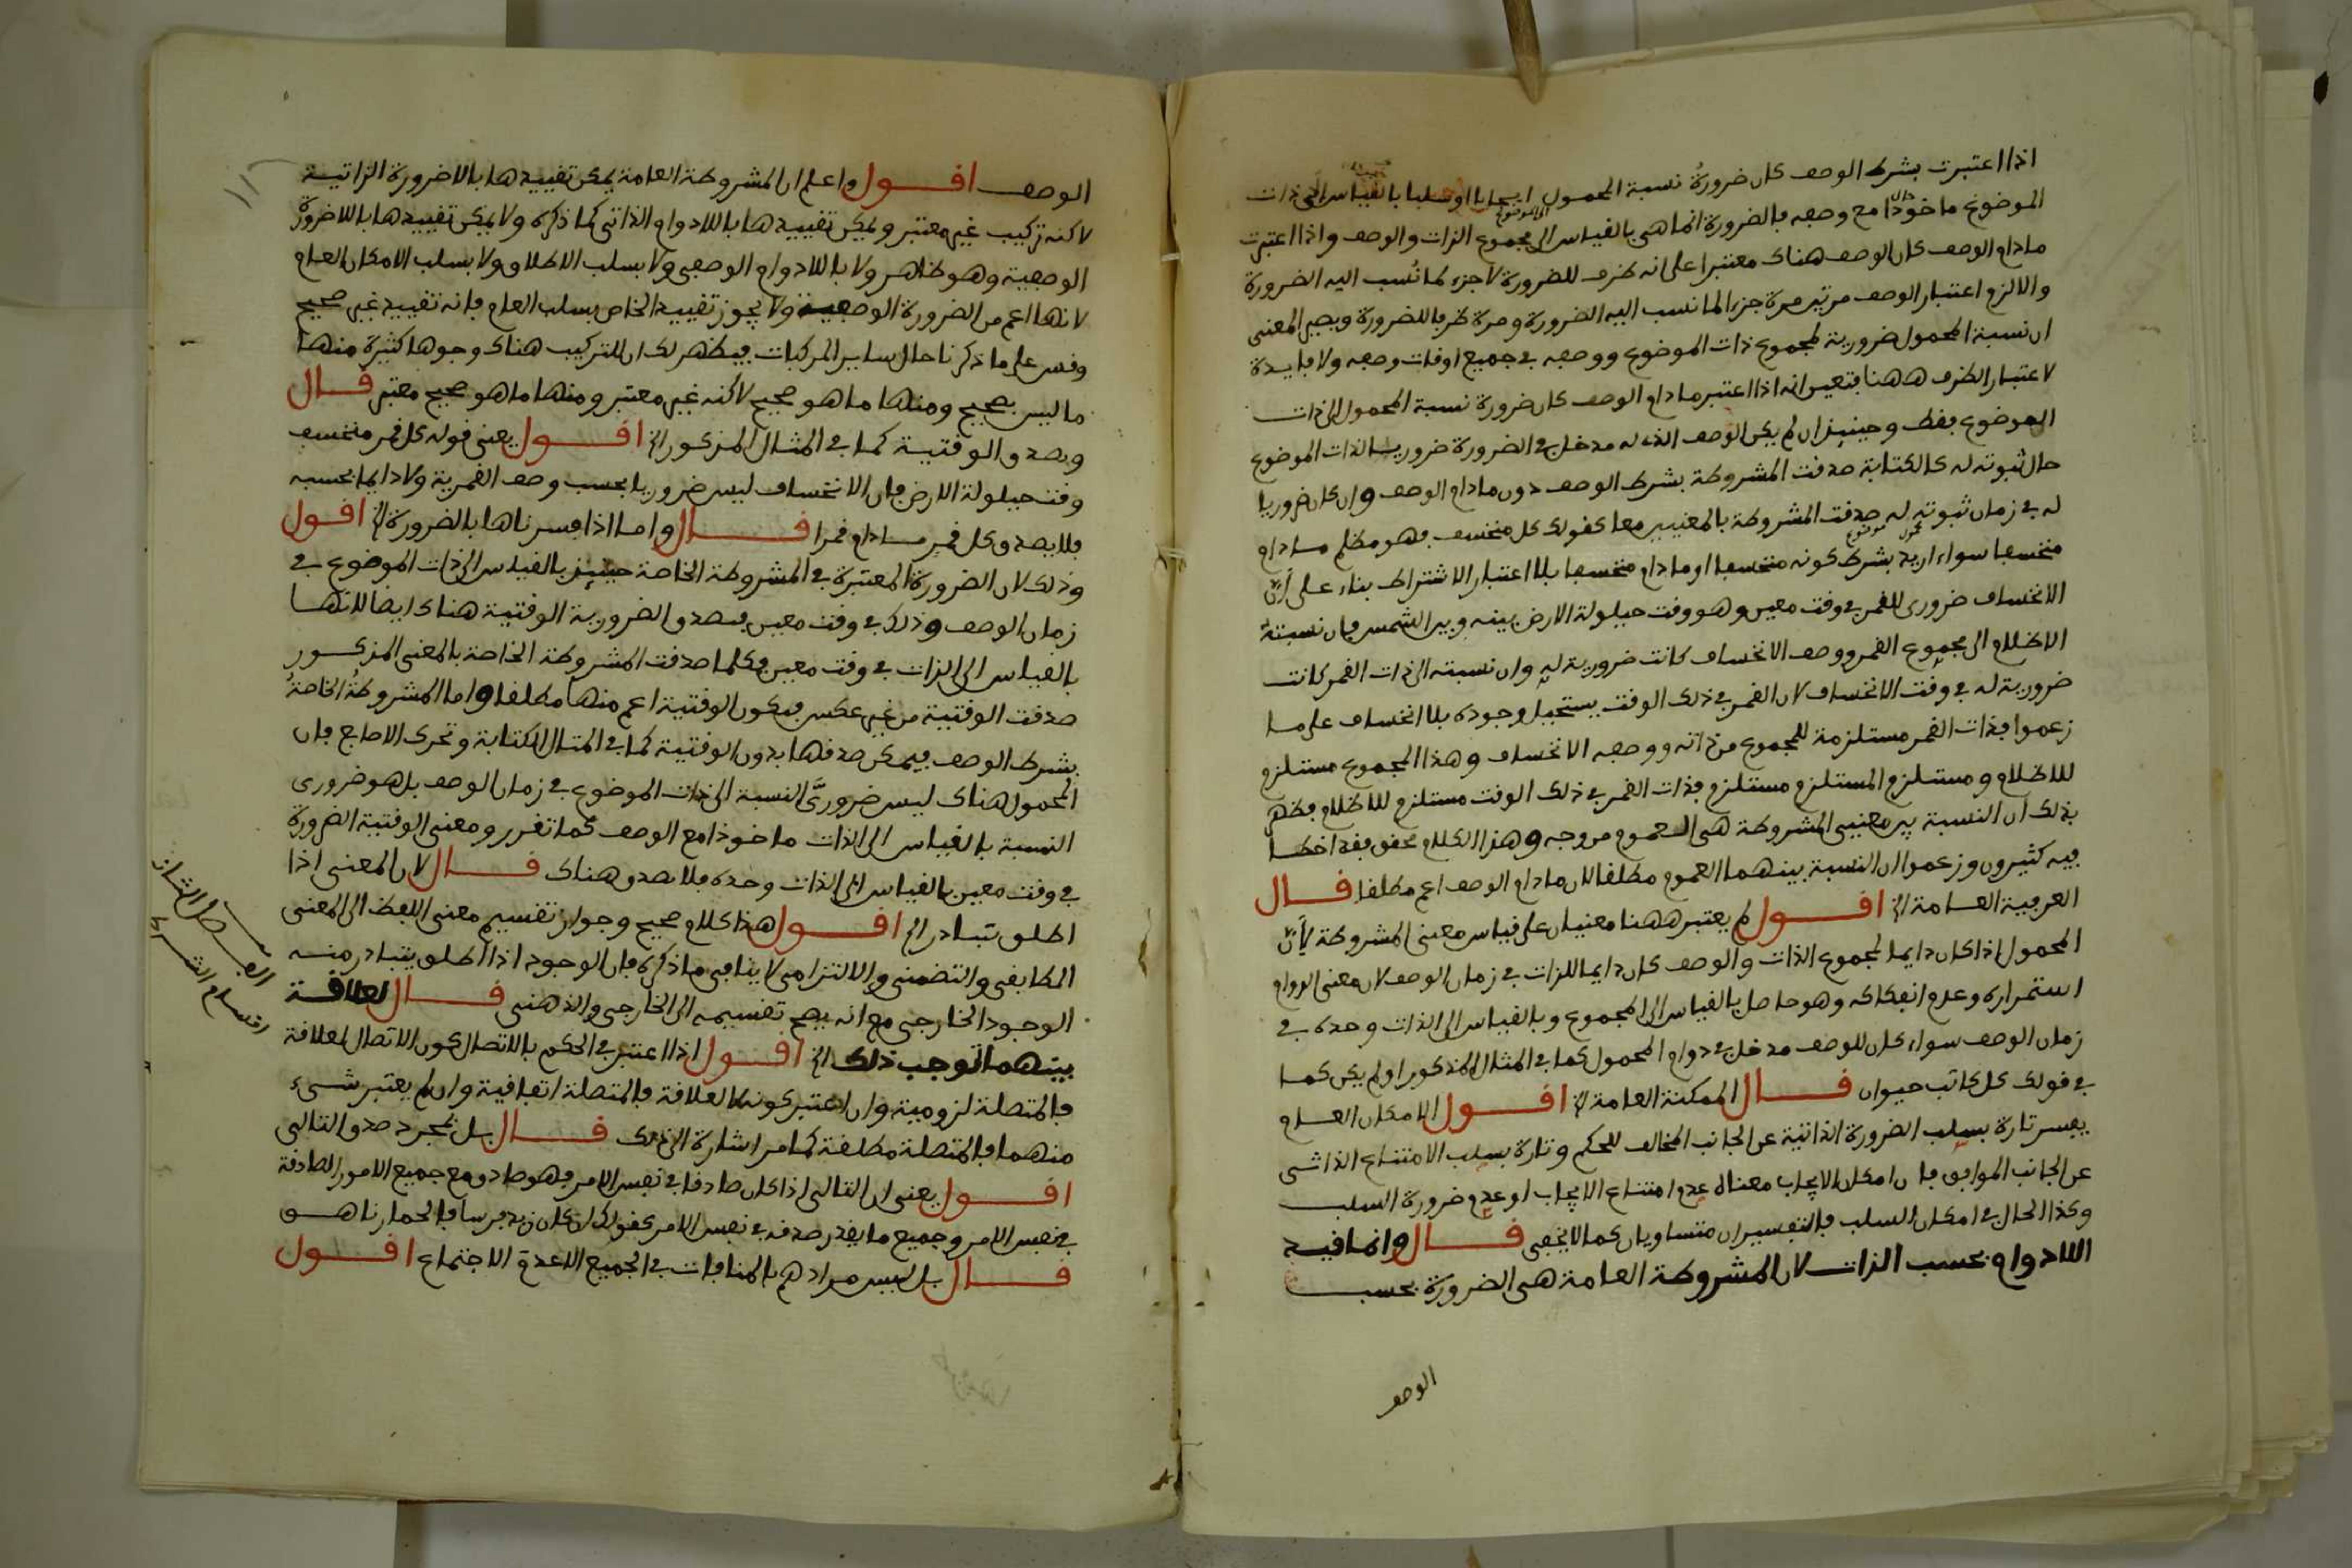 اذا اعتبرت بشرط الوصف كان ضرورة نسبة المحمول ايجابا او سلبا بالقياس الى ذات
الموضوع ماخوذا مع وصفه فالضرورة انما هي بالقياس الى مجموع الذات والوصف واذا اعتبرت
مادام الوصف كان الوصف هناك معتبرا على انه ظرف للضرورة لا جزء لما نُسب اليه الضرورة
والا لزم اعتبار الوصف مرتين مرة جزء لما نسب اليه الضرورة ومرة ظرفا للضرورة ويصير المعنى
ان نسبة المحمول ضرورية لمجموع ذات الموضوع ووصفه في جميع اوقات وصفه ولا فايدة
لاعتبار الظرف ههنا فتعين انه اذا اعتبر مادام الوصف كان ضرورة نسبة المحمول الى ذات
الموضوع فقط وحينئذ ان لم يكن الوصف الذي له مدخل في الضرورة ضروريا لذات الموضوع
حال ثبوته له كالكتابة صدقت المشروطة بشرط الوصف دون مادام الوصف وان كان ضروريا
له في زمان ثبوته له صدقت المشروطة بالمعنيين معا كقولك كل منخسف فهو مظلم مادام
منخسفا سواء اريد بشرط كونه منخسفا او مادام منخسفا بلا اعتبار الاشتراط بناء على أنّ
الانخساف ضروري للقمر في وقت معين وهو وقت حيلولة الارض بينه وبين الشمس فان نسبتَ
الاظلام الى مجموع القمر ووصف الانخساف كانت ضرورية له وان نسبته الى ذات القمر كانت
ضرورية له في وقت الانخساف لان القمر في ذلك الوقت يستحيل وجوده بلا انخساف على ما
زعموا فذات القمر مستلزمة للمجموع من ذاته ووصفه الانخساف وهذا المجموع مستلزم
للاظلام ومستلزم المستلزم مستلزم فذات القمر في ذلك الوقت مستلزم للاظلام فظهر
بذلك ان النسبة بين معنيي المشروطة هي العموم من وجه وهذا الكلام محقق فقد اخطا
فيه كثيرون وزعموا ان النسبة بينهما العموم مطلقا لان مادام الوصف اعم مطلقا قال
العرفية العامة الخ اقول لم يعتبر ههنا معنيان على قياس معنى المشروطة لأنّ
المحمول اذا كان دايما لمجموع الذات والوصف كان دايما للذات في زمان الوصف لان معنى الدوام
استمراره وعدم انفكاكه وهو حاصل بالقياس الى المجموع وبالقياس الى الذات وحده في
زمان الوصف سواء كان للوصف مدخل في دوام المحمول كما في المثال المذكور او لم يكن كما
في قولك كل كاتب حيوان قال الممكنة العامة الخ اقول الامكان العام
يفسر تارة بسلب الضرورة الذاتية عن الجانب المخالف للحكم وتارة بسلب الامتناع الذاتي
عن الجانب الموافق فان امكان الايجاب معناه عدم امتناع الايجاب او عدم ضرورة السلب
وكذا الحال في امكان السلب فالتفسيران متساويان كما لا يخفى قال وانما قيد
اللادوام بحسب الذات لان المشروطة العامة هي الضرورة بحسب
الوصف
الوصف اقول واعلم ان المشروطة العامة يمكن تقييدها باللاضرورة الذاتية
لاكنه تركيب غير معتبر ويمكن تقييدها باللادوام الذاتي كما ذكره ولا يمكن تقييدها باللاضرورة
الوصفية وهو ظاهر ولا باللادوام الوصفي ولا بسلب الاطلاق ولا بسلب الامكان العام
لانها اعم من الضرورة الوصفية ولا يجوز تقييد الخاص بسلب العام فانه تقييد غير صحيح
وقس على ما ذكرنا حال ساير المركبات فيظهر لك ان للتركيب هناك وجوها كثيرة منها
ما ليس بصحيح ومنها ما هو صحيح لاكنه غير معتبر ومنها ما هو صحيح معتبر قال
وبصدق الوقتية كما في المثال المذكور الخ اقول يعني قوله كل قمر منخسف
وقت حيلولة الارض فان الانخساف ليس ضروريا بحسب وصف القمرية ولا دايما بحسبه
فلا يصدق كل قمر مادام قمرا قال واما اذا فسرناها بالضرورة الخ اقول
وذلك لان الضرورة المعتبرة في المشروطة الخاصة حينئذ بالقياس الى ذات الموضوع في
زمان الوصف وذلك في وقت معين فيصدق الضرورية الوقتية هناك ايضا لانها
بالقياس الى الذات في وقت معين فكلما صدقت المشروطة الخاصة بالمعنى المذكور
صدقت الوقتية من غير عكس فيكون الوقتية اعم منها مطلقا واما المشروطةُ الخاصةُ
بشرط الوصف فيمكن صدقها بدون الوقتية كما في المثال الكتابة وتحرك الاصابع فان
المحمول هناك ليس ضروريَّ النسبة الى ذات الموضوع في زمان الوصف بل هو ضروري
النسبة بالقياس الى الذات ماخوذا مع الوصف كما تقرر ومعنى الوقتية الضرورة
في وقت معين بالقياس الى الذات وحده فلا يصدق هناك قال لان المعنى اذا
اطلق تبادر الخ اقول هذا كلام صحيح وجواز تقسيم معنى اللفظ الى المعنى
المطابقي والتضمني والالتزامي لا ينافي ما ذكره فان الوجود اذا اطلق يتبادر منه
الوجود الخارجي مع انه يصح تقسيمه الى الخارجي والذهني قال لعلاقة
بينهما توجب ذلك الخ اقول اذا اعتبر في الحكم بالاتصال كون الاتصال لعلاقة
فالمتصلة لزومية وان اعتبر كونه لا لعلاقة فالمتصلة اتفاقية وان لم يعتبر شيء
منهما فالمتصلة مطلقة كما مر اشارة الى ذلك قال بل بمجرد صدق التالي
اقول يعني ان التالي اذا كان صادقا في نفس الامر فهو صادق مع جميع الامور الصادقة
في نفس الامر وجميع ما يقدر صدقه في نفس الامر كقولك ان كان زيد فرسا فالحمار ناهق
قال بل ليس مرادهم بالمنافات في الجميع اللاعدم الاجتماع اقول
الفصل الثاني
اقسام الشرط